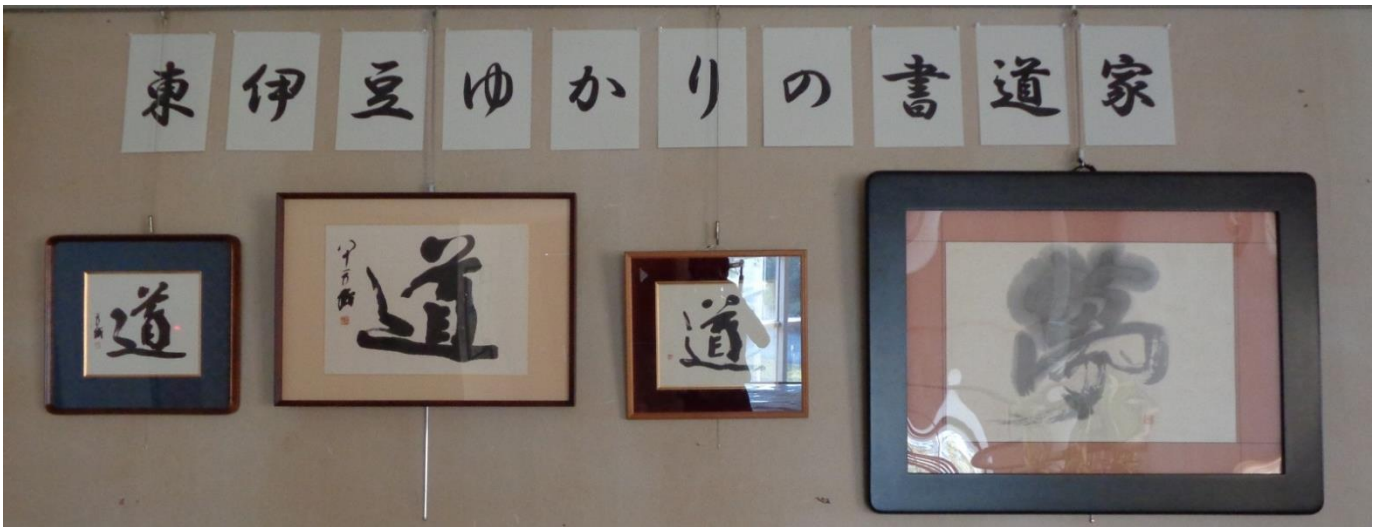 東伊豆ゆかりの書道家
道
道
道
夢